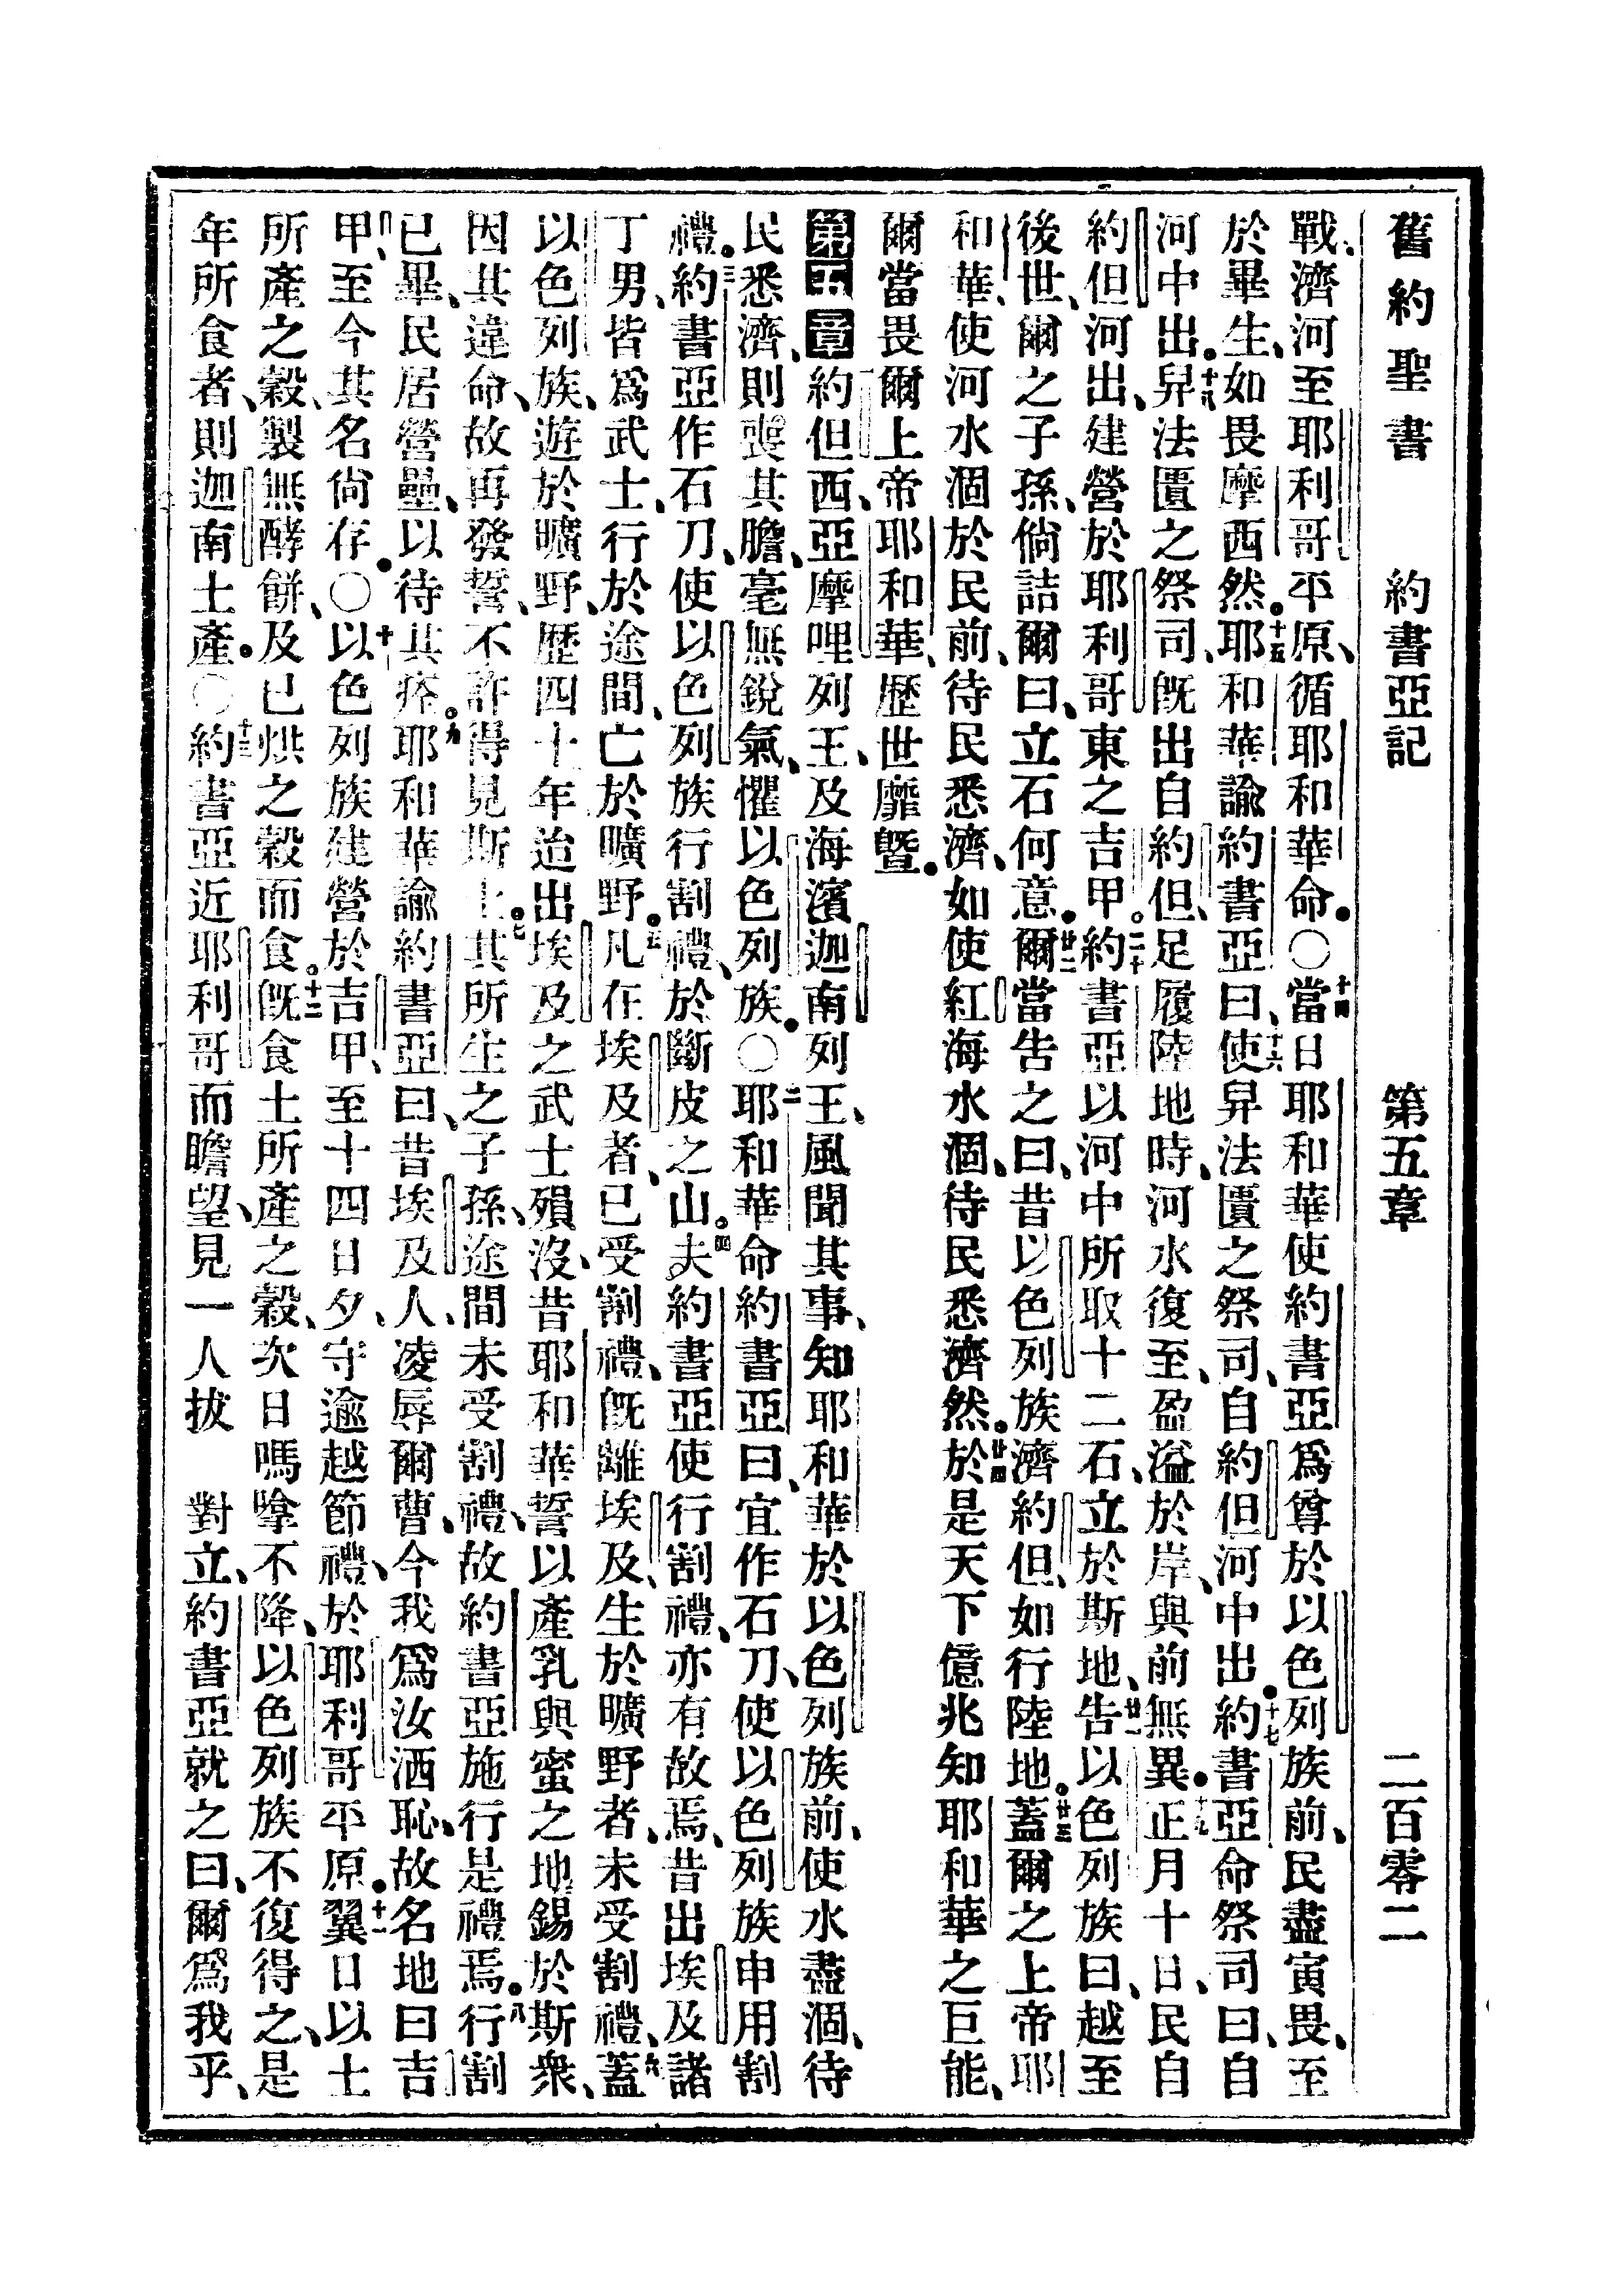 舊約聖書　約書亞記　第五章　二百零二
戰、濟河至耶利哥平原、循耶和華命。○十四當日耶和華使約書亞爲尊於以色列族前、民盡寅畏、至
於畢生、如畏摩西然。十五耶和華諭約書亞曰、十六使舁法匱之祭司、自約但河中出。十七約書亞命祭司曰、自
河中出。十八舁法匱之祭司、旣出自約但、足履陸地時、河水復至、盈溢於岸、與前無異。十九正月十日、民自
約但河出、建營於耶利哥東之吉甲。二十約書亞以河中所取十二石、立於斯地、廿一告以色列族曰、越至
後世、爾之子孫、倘詰爾曰、立石何意。廿二爾當告之曰、昔以色列族濟約但、如行陸地。廿三蓋爾之上帝耶
和華、使河水涸於民前、待民悉濟、如使紅海水涸、待民悉濟然。廿四於是天下億兆知耶和華之巨能、
爾當畏爾上帝耶和華、歷世靡曁。
第五章約但西、亞摩哩列王、及海濱迦南列王、風聞其事、知耶和華於以色列族前、使水盡涸、待
民悉濟、則喪其膽、毫無銳氣、懼以色列族。○二耶和華命約書亞曰、宜作石刀、使以色列族申用割
禮。三約書亞作石刀、使以色列族行割禮、於斷皮之山。四夫約書亞使行割禮、亦有故焉、昔出埃及諸
丁男、皆爲武士、行於途間、亡於曠野。五凡在埃及者、已受割禮、旣離埃及、生於曠野者、未受割禮、六蓋
以色列族、遊於曠野、歷四十年、迨出埃及之武士殞沒、昔耶和華誓以產乳與蜜之地錫於斯衆、
因其違命、故再發誓、不許得見斯土。七其所生之子孫、途間未受割禮、故約書亞施行是禮焉。八行割
已畢、民居營壘、以待其痊。九耶和華諭約書亞曰、昔埃及人、凌辱爾曹、今我爲汝洒恥、故名地曰吉
甲、至今其名尙存。○十以色列族建營於吉甲、至十四日夕、守逾越節禮、於耶利哥平原。十一翼日以土
所產之穀、製無酵餅、及已烘之穀而食。十二旣食土所產之穀、次日嗎嗱不降、以色列族不復得之、是
年所食者、則迦南土產。○十三約書亞近耶利哥而瞻望、見一人拔　對立、約書亞就之曰、爾爲我乎、